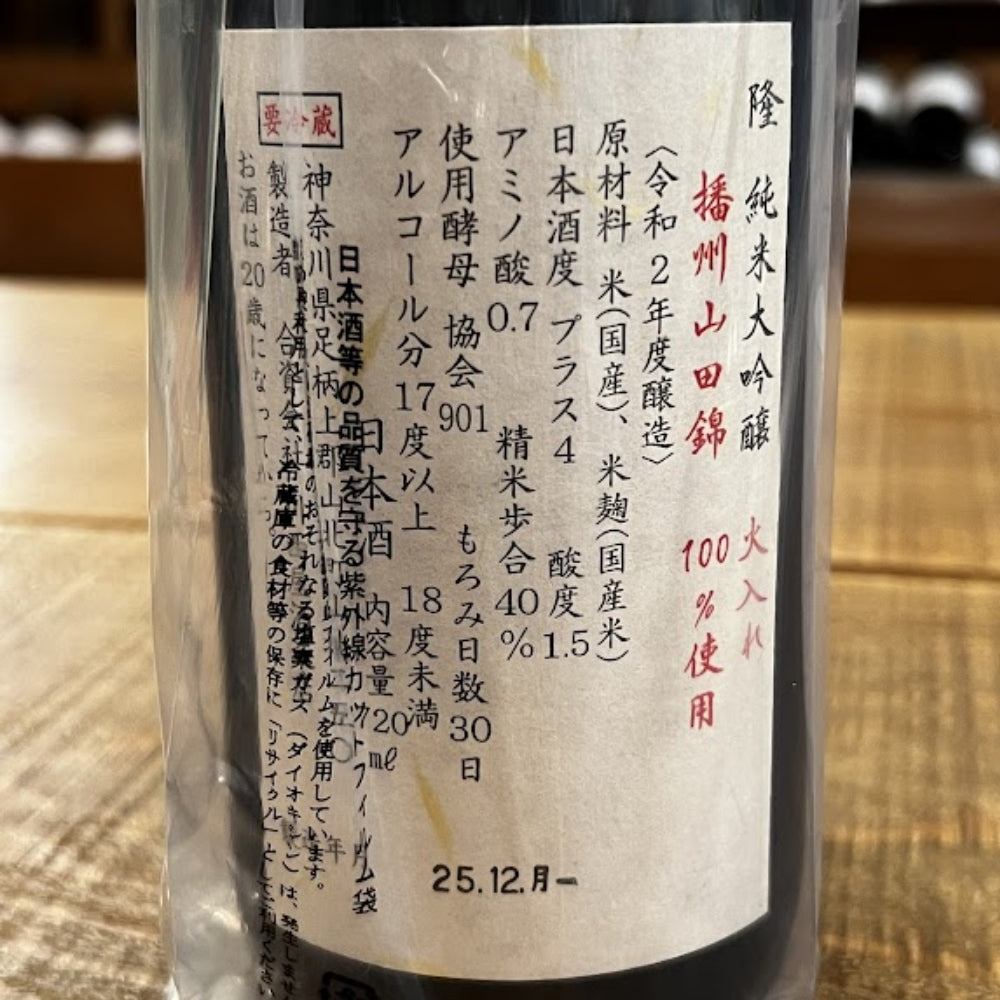 隆 純米大吟醸 火入れ
播州山田錦 100%使用
〈令和2年度醸造〉
原材料 米(国産)、米麹(国産米)
日本酒度 プラス4 酸度1.5
アミノ酸 0.7 精米歩合40%
使用酵母 協会901 もろみ日数30日
アルコール分17度以上 18度未満
日本酒 内容量720ml
要冷蔵
神奈川県足柄上郡山北町
製造者 合資会社
お酒は20歳になってから
25.12.月
日本酒等の品質を守る紫外線カットフィルム袋
フィルムを使用しています。
のおそれなる塩素ガス(ダイオキシン)は、発生しません
冷蔵庫の食材等の保存に「リサイクル」としてご利用ください